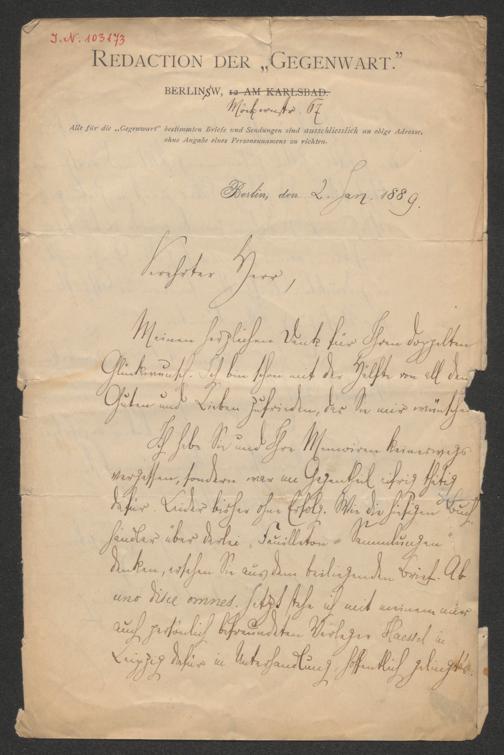 I.N. 103173
REDACTION DER „GEGENWART."
BERLIN SW, 12 AM KARLSBAD.
Möckernstr. 67
Alle für die „Gegenwart" bestimmten Briefe und Sendungen sind ausschliesslich an obige Adresse,
ohne Angabe eines Personennamens zu richten.
Berlin, den 2. Jan. 1889.
Verehrter Herr,
Meinen herzlichen Dank für Ihren doppelten
Glückwunsch. Ich bin schon mit der Hälfte von all dem
Guten und Lieben zufrieden, das Sie mir wünschen.
Ich habe Sie und Ihre Memoiren keineswegs
vergessen, sondern war im Gegentheil eifrig thätig
dafür. Leider bisher ohne Erfolg. Wie die hiesigen Buch-
händler über derlei „Feuilleton-Sammlungen"
denken, ersehen Sie aus dem beiliegenden Brief. Ab
uno disce omnes. Jetzt stehe ich mit meinem mir
auch persönlich befreundeten Verleger Haessel in
Leipzig dafür in Unterhandlung, hoffentlich gelingt's.